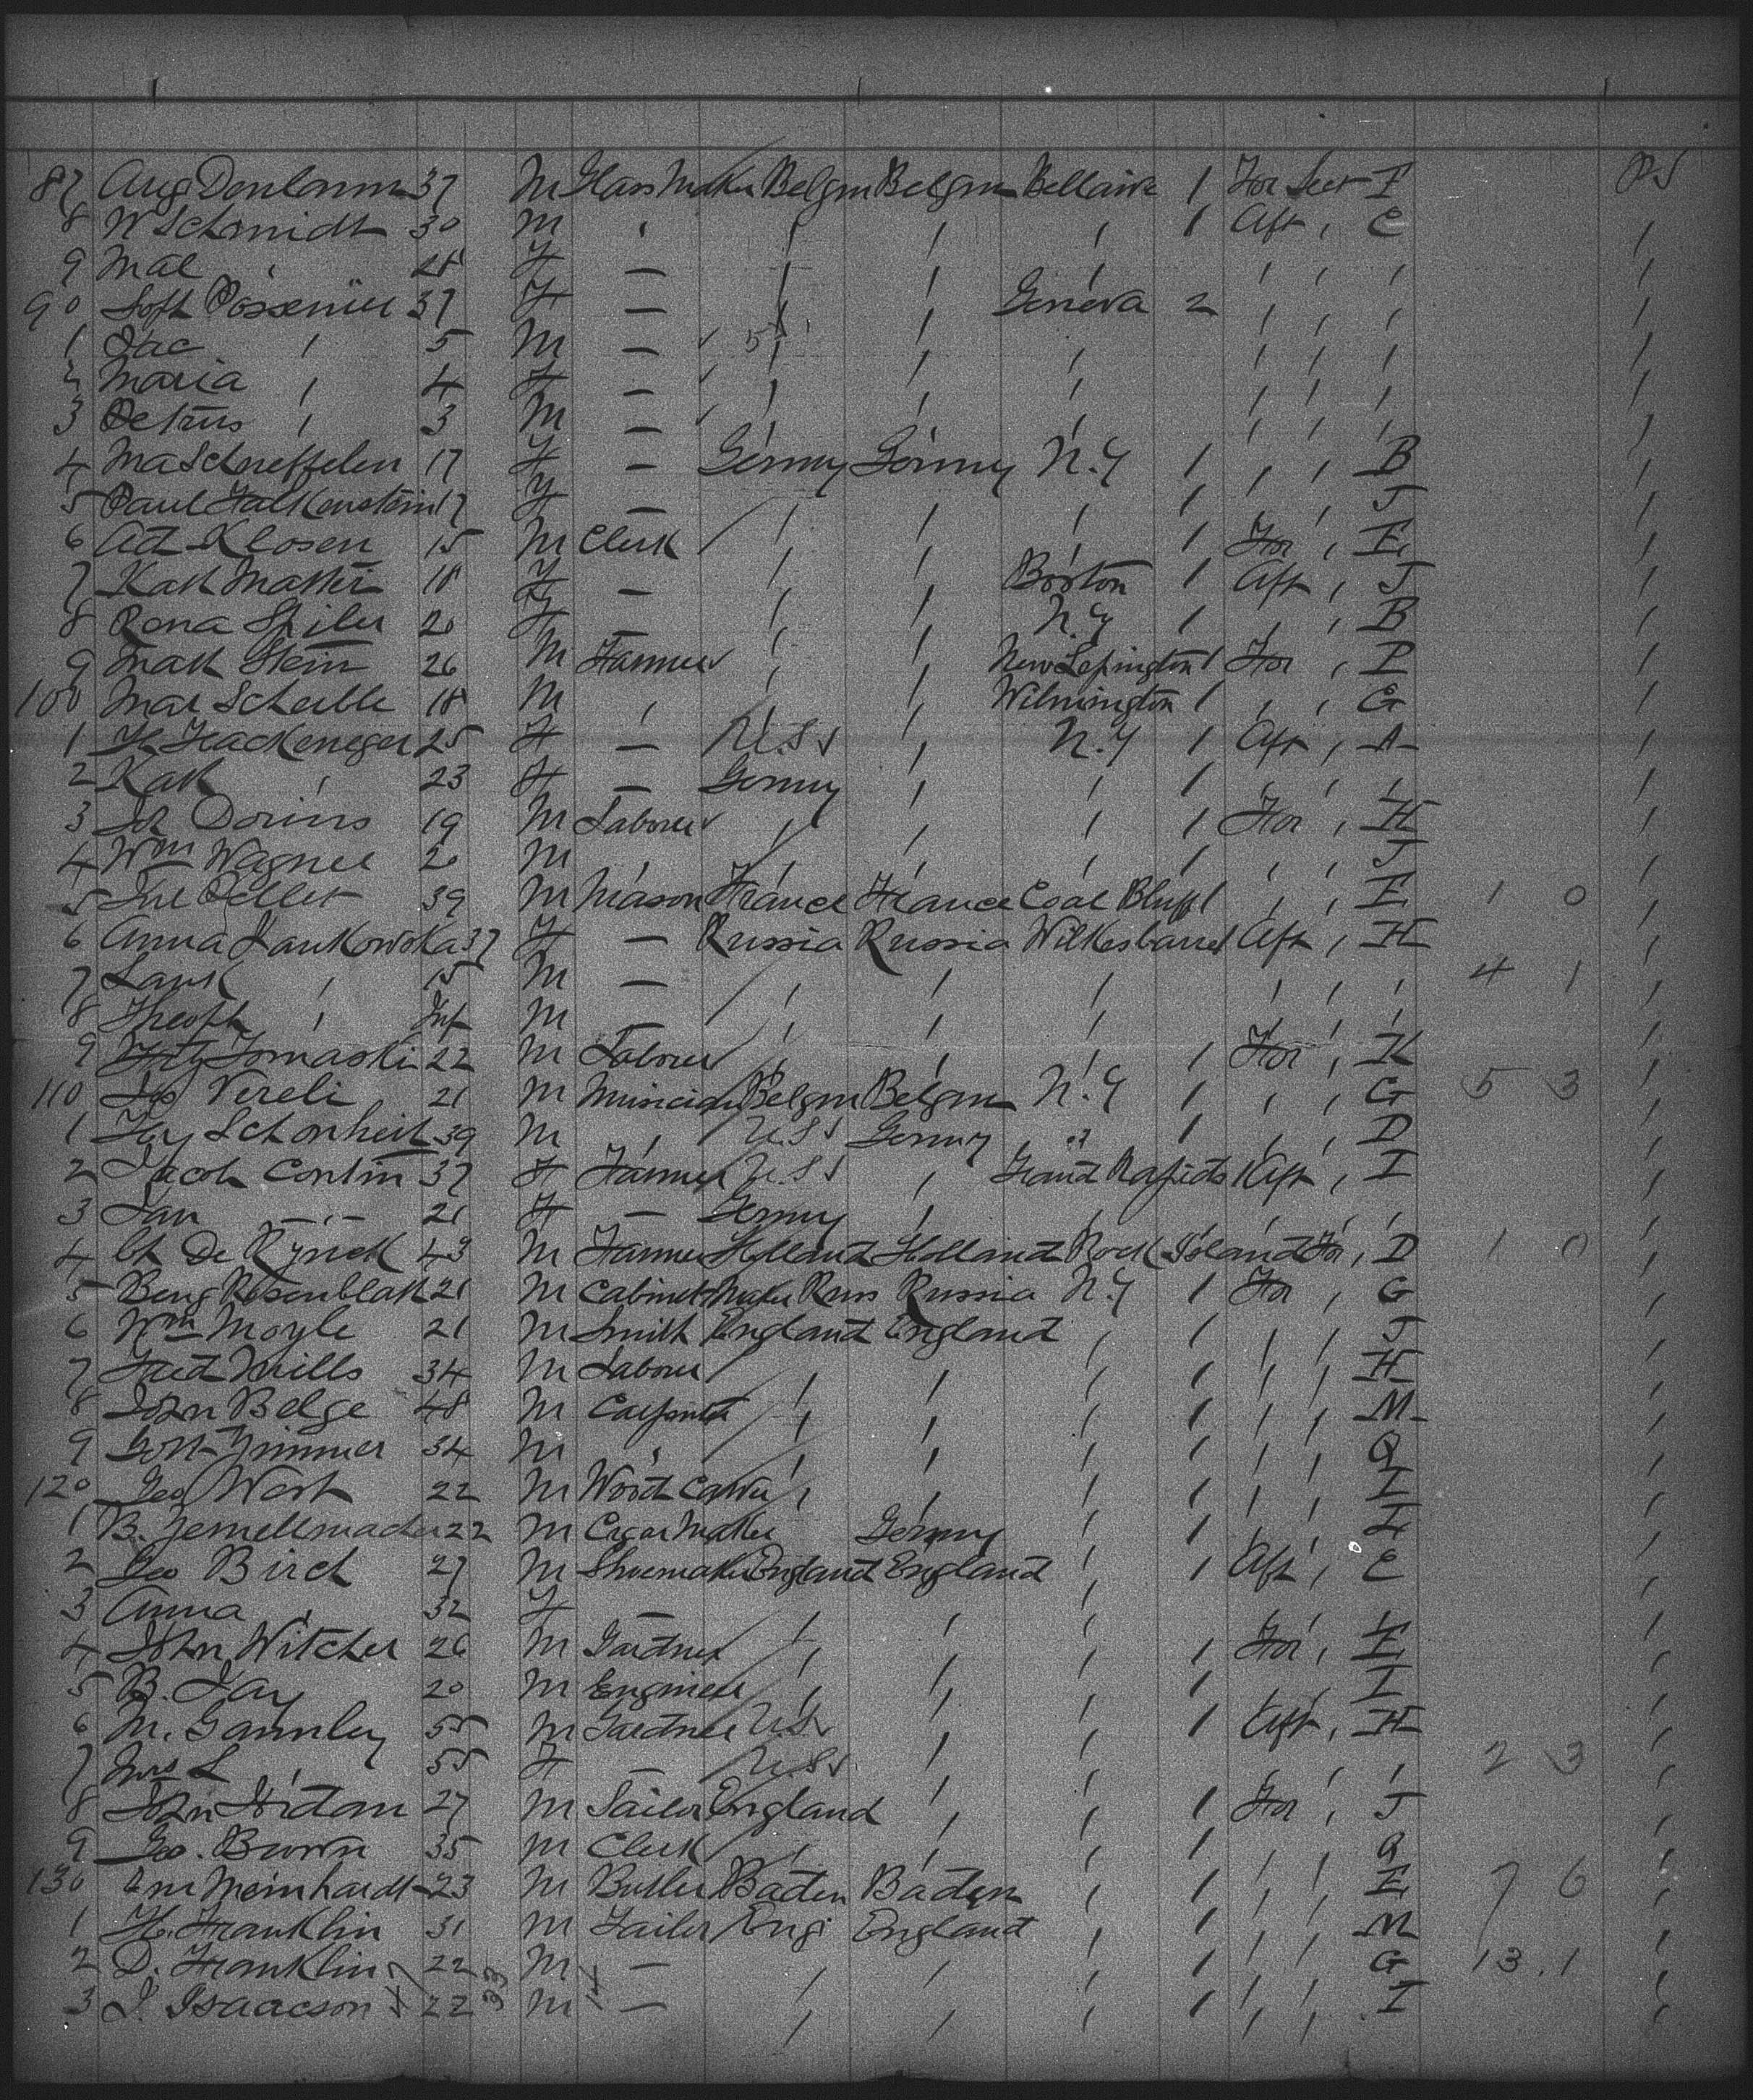 87 Aug Donlamm 37 M Glass Maker Belgm Belgm Bellaire 1 For Sect F PS
8 N Schmidt 30 M " " " " 1 Aft " C "
9 Mal " 28 F — " " " " " " "
90 Soft Possenier 37 F — " " Geneva 2 " " " "
1 Jac " 5 M — " " " " " " "
2 Maria " 4 F — " " " " " " "
3 Petrus " 3 M — " " " " " " "
4 Ma Schreffelen 17 F — Germy Germy N.Y 1 " " B "
5 Paul Falkenstein 17 F — " " " 1 " " J "
6 Ad Klosen 15 M Clerk " " " 1 For " E "
7 Kath Mattei 18 F — " " Boston 1 Aft " J "
8 Rona Spiler 20 F — " " N.Y 1 " " B "
9 Math Stein 26 M Farmer " " New Lexington 1 For " P "
100 Mar Scheible 18 M " " " Wilmington 1 " " G "
1 H Hackeneger 25 F — U.S. " N.Y 1 Aft " A "
2 Kath " 23 F — Germy " " 1 " " " "
3 Jos Dorins 19 M Laborer " " " 1 For " H "
4 Wm Wagner 20 M " " " " 1 " " J "
5 Jul Pellet 39 M Mason France France Coal Bluff 1 " " E 1 0 "
6 Anna Jankowska 37 F — Russia Russia Wilkesbarre 1 Aft " H "
7 " 15 M — " " " " " " 4 1 "
8 Theoph " Inf M — " " " " " " "
9 Tomaski 22 M Laborer " " " 1 For " K "
110 Vereli 21 M Musician Belgm Belgm N.Y 1 " " G 5 3 "
1 Hy Schonheit 39 M " U.S. Germy " 1 " " D "
2 Jacob Contin 37 F Farmer U.S. " Grand Rapids 1 Aft " I "
3 " 21 F — Germy " " " " " "
4 De Rynck 43 M Farmer Holland Holland Rock Island For " D 1 0 "
5 Beng Rosenblatt 21 M Cabinet Maker Russ Russia N.Y 1 For " G "
6 Wm Moyle 21 M Smith England England " 1 " " J "
7 Fred Mills 34 M Laborer " " " 1 " " H "
8 John Belge 48 M Carpenter " " " 1 " " M "
9 Gott Zimmer 34 M " " " " 1 " " Q "
120 Geo West 22 M Wood Carver " " " 1 " " I "
1 B. Zemellmacher 22 M Cigar Maker Germy " 1 " " L "
2 Geo Birch 27 M Shoemaker England England " 1 Aft " C "
3 Anna " 32 F — " " " " " " "
4 John Witcher 26 M Gardner " " " 1 For " E "
5 B. Jay 20 M Engineer " " " 1 " " I "
6 M. Gannley 55 M Gardner U.S. " " 1 Aft " H "
7 Mrs L " 55 F — U.S.S. " " " " " 2 3 "
8 John Jordan 27 M Sailer England " " 1 For " J "
9 Geo. Brown 35 M Clerk " " " 1 " " Q "
130 Meinhardt 23 M Butler Baden Baden " 1 " " E 7 6 "
1 H. Franklin 31 M Tailer Eng England " 1 " " M "
2 D. Franklin 22 M — " " " 1 " " G 13 . 1 "
3 J. Isaacson 22 M — " " " 1 " " I "